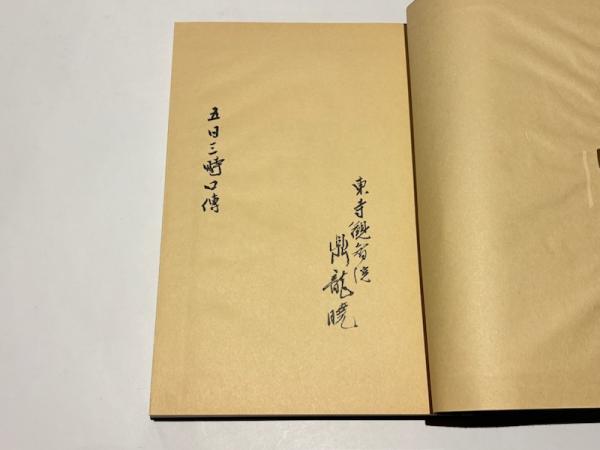 東寺觀智院
鼎龍曉
五日三時口傳